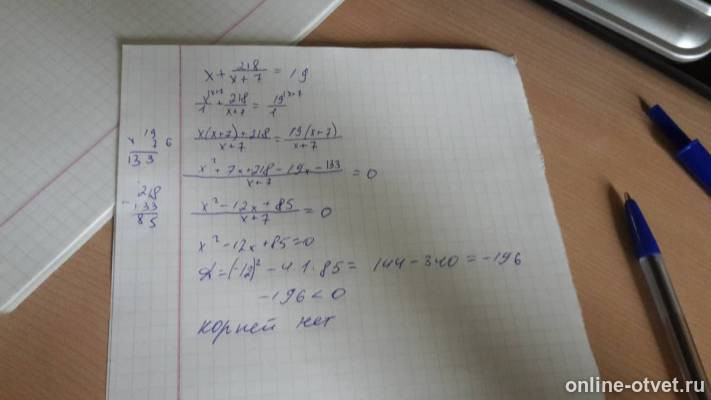 x + 218/(x+7) = 19
x^(x+7)/1 + 218/(x+7) = 19^(x+7)/1
(x(x+7)+218)/(x+7) = 19(x+7)/(x+7)
(x²+7x+218-19x-133)/(x+7) = 0
(x²-12x+85)/(x+7) = 0
x²-12x+85=0
D=(-12)²-4·1·85= 144-340=-196
-196<0
корней нет
19
x 7 6
133
- 218
133
85
online-otvet.ru